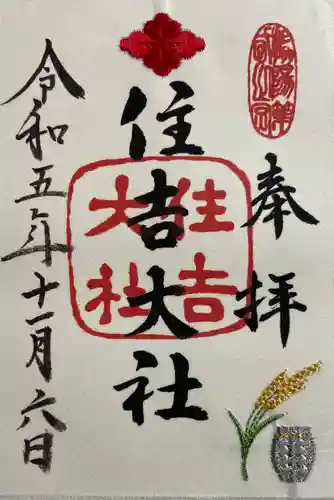 奉拝
住吉大社
住吉
大社
令和五年十一月六日